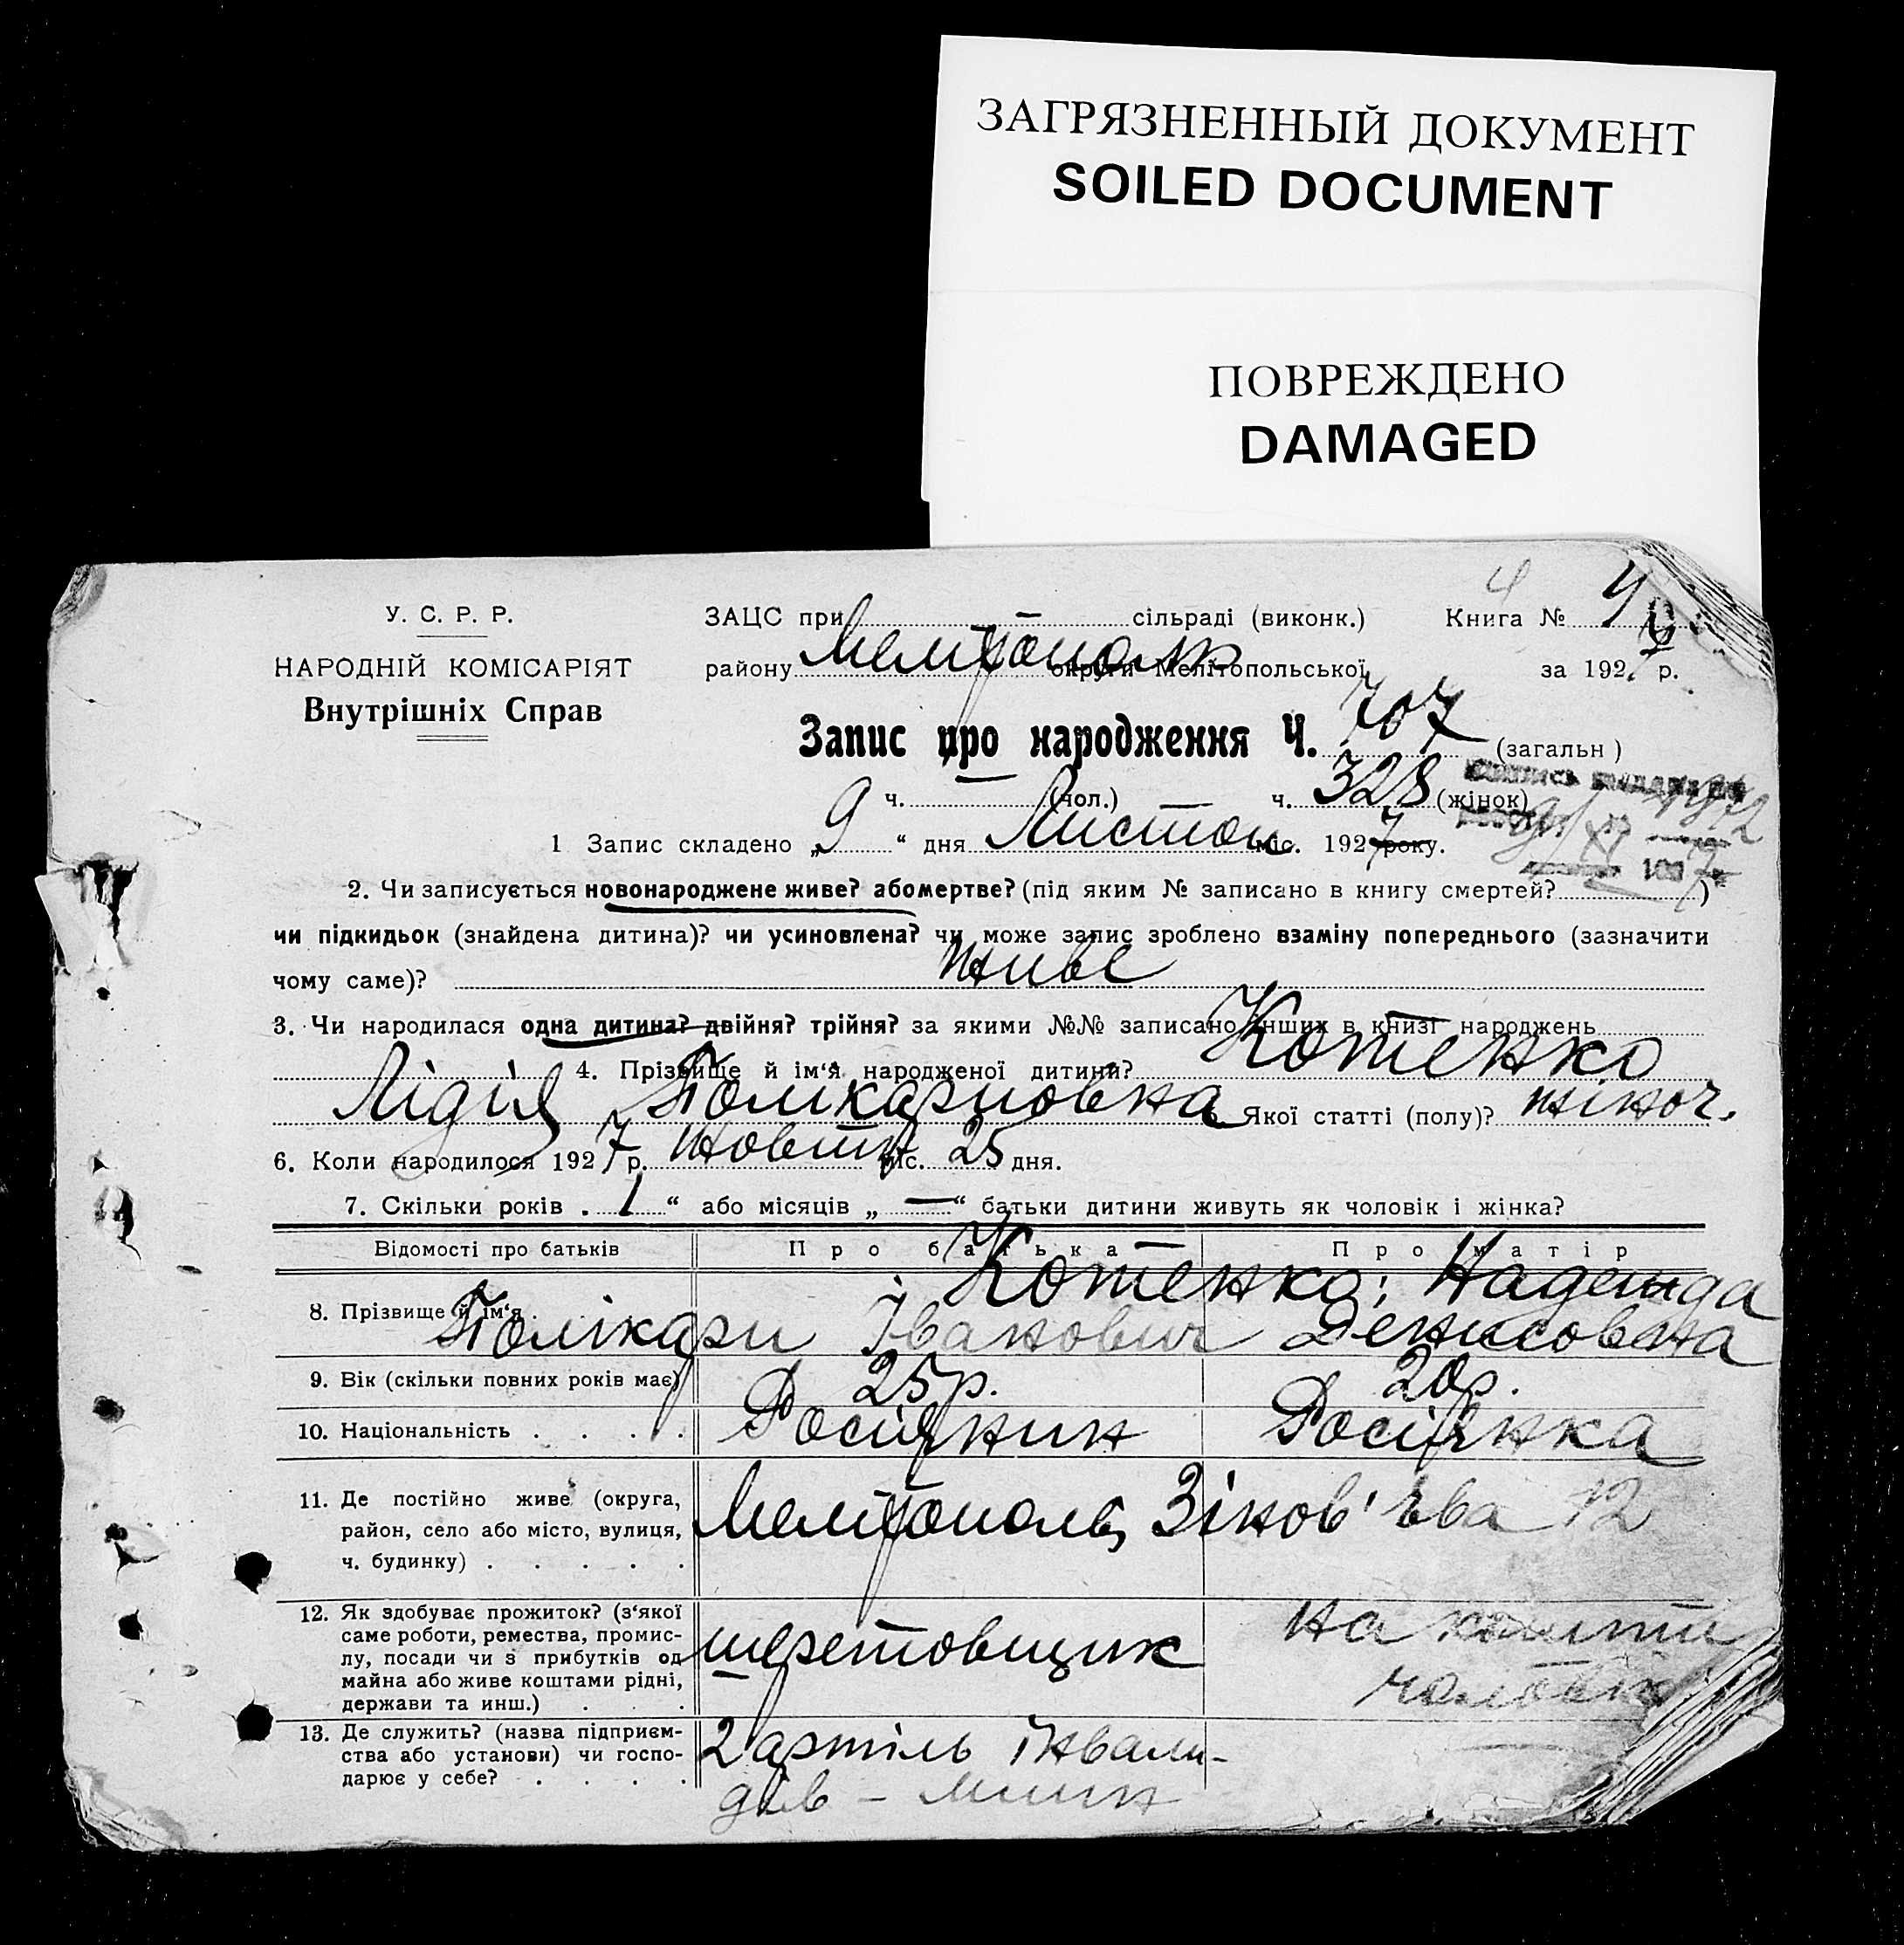 ЗАГРЯЗНЕННЫЙ ДОКУМЕНТ
SOILED DOCUMENT
ПОВРЕЖДЕНО
DAMAGED
У. С. Р. Р.
НАРОДНІЙ КОМІСАРІЯТ
Внутрішніх Справ
4
ЗАЦС при сільраді (виконк.) Книга №
району Мелітополь округи Мелітопольської за 192 р.
Запис про народження Ч. 707 (загальн )
ч. (чол.) ч. 328 (жінок)
1 Запис складено „ 9 “ дня Листоп міс. 1927 року.
2. Чи записується новонароджене живе? або мертве? (під яким № записано в книгу смертей? )
чи підкидьок (знайдена дитина)? чи усиновлена? чи може запис зроблено взаміну попереднього (зазначити
чому саме)? живе
3. Чи народилася одна дитина? двійня? трійня? за якими №№ записано інших в книзі народжень
4. Прізвище й ім‘я народженої дитини? Котенко
Лідія Полікарповна Якої статті (полу)? жіноч.
6. Коли народилося 1927 р. жовтн міс. 25 дня.
7. Скільки років . 1 “ або місяців „ — “ батьки дитини живуть як чоловік і жінка?
Відомості про батьків Про батька Про матір
8. Прізвище й ім‘я Котенко: Надежда
Полікарп Іванович Денисовна
9. Вік (скільки повних років має) 25 р. 20 р.
10. Національність . . . . Росіянин Росіянка
11. Де постійно живе (округа,
район, село або місто, вулиця,
ч. будинку) . . . . .
Мелітополь, Зінов'єва 12
12. Як здобуває прожиток? (з‘якої
саме роботи, ремества, промис-
лу, посади чи з прибутків од
майна або живе коштами рідні,
держави та инш.) . . .
шеретовщик
на кошти
чоловік
13. Де служить? (назва підприєм-
ства або установи) чи госпо-
дарює у себе? . . . .
2 артіль інвалі-
дів - млин